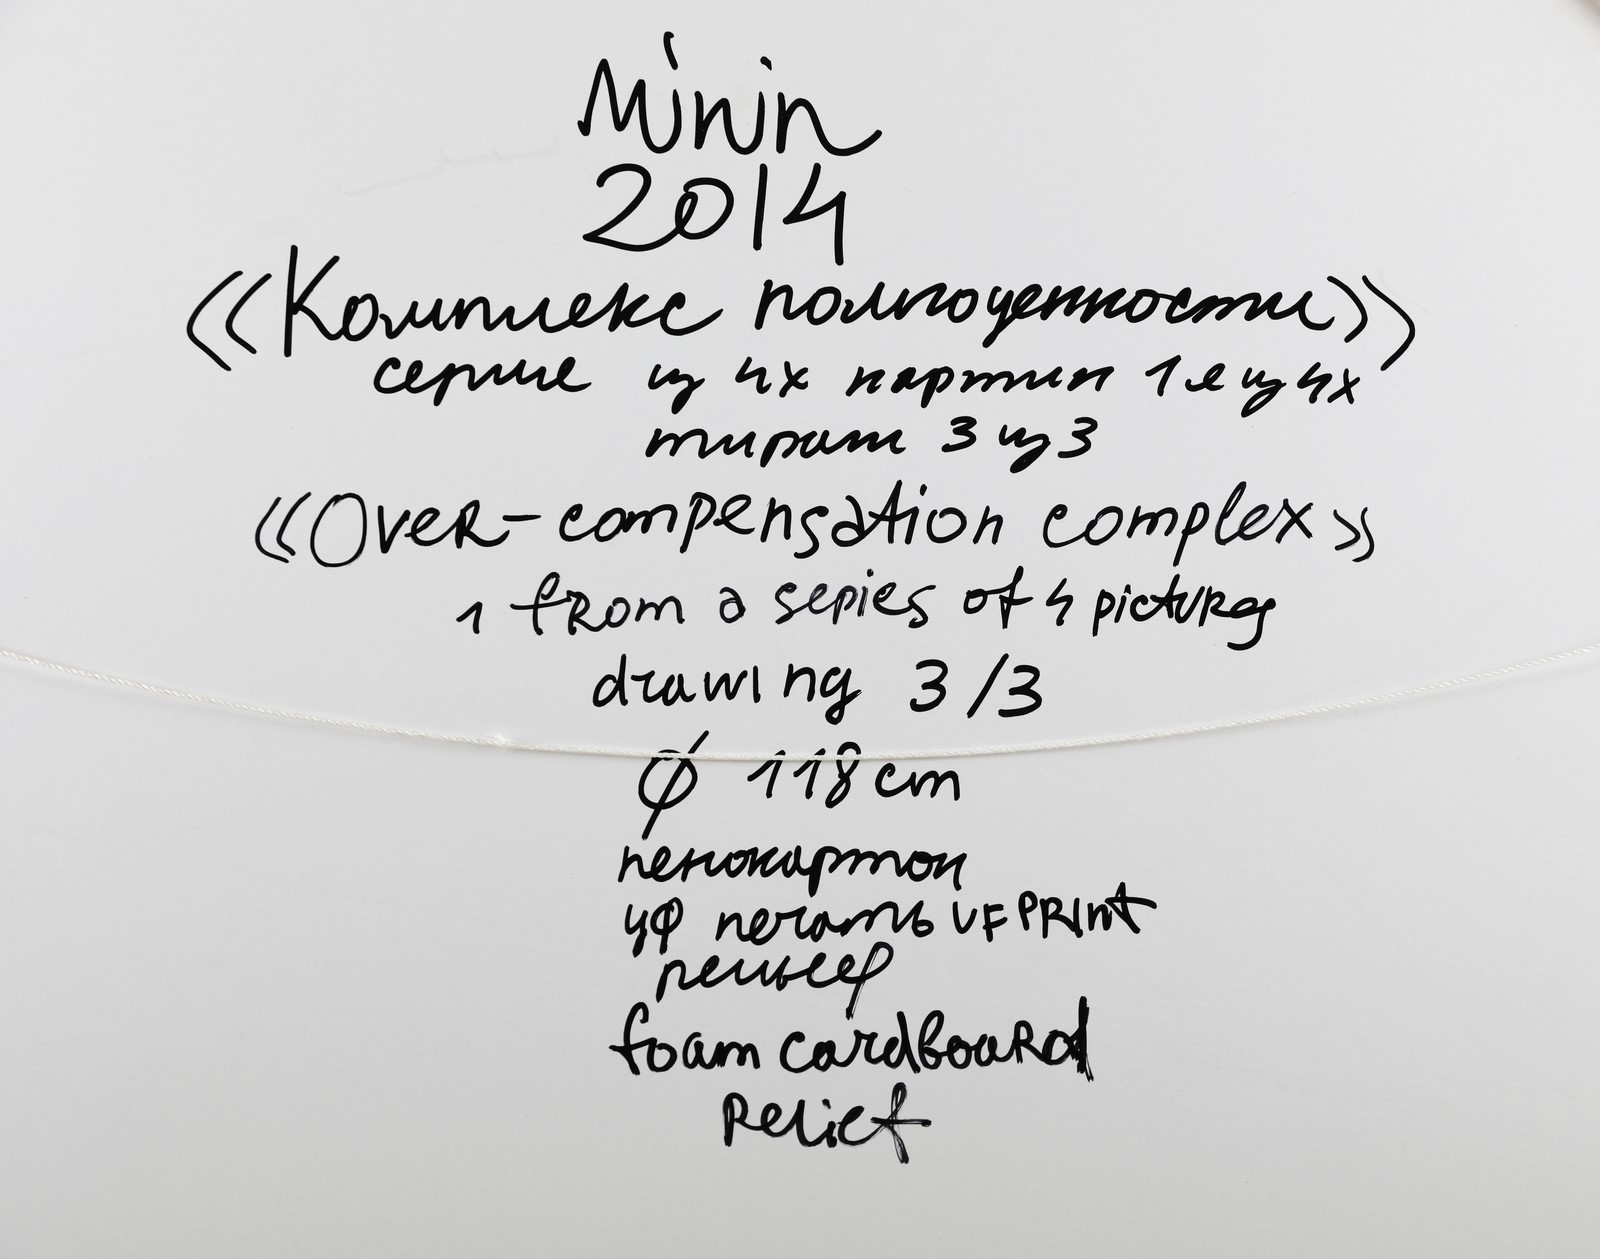 Minin
2014
«Комплекс полноценности»
серие из 4х картин 1я из 4х
тираж 3 из 3
«Over-compensation complex»
1 from a series of 4 pictures
drawing 3/3
Ø 118 cm
пенокартон
УФ печать UF PRINT
рельеф
foam cardboard
Relief